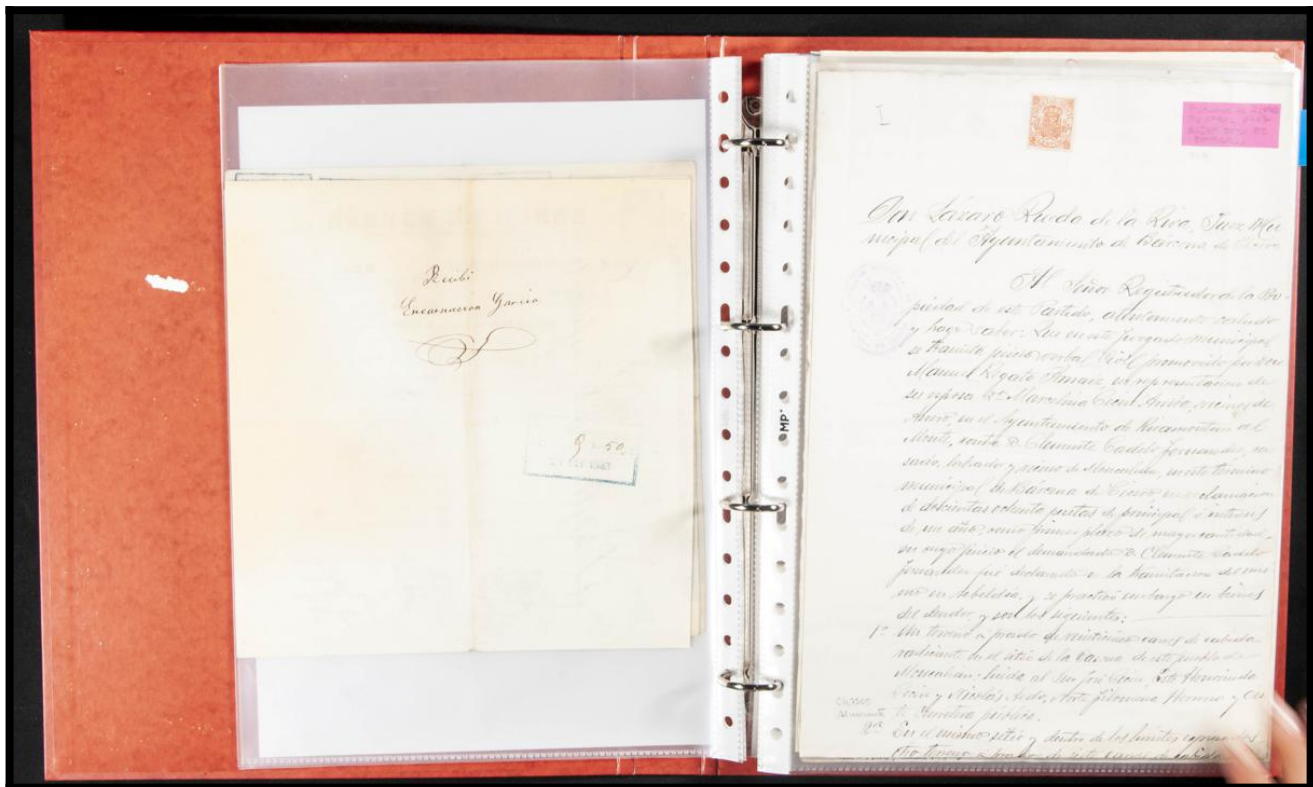 Recibí
Encarnacion Garcia
9-50
MP.
I
Don Lázaro Rueda de la Riva, Juez Mu-
nicipal del Ayuntamiento de Bárcena de Cicero
Al Señor Registrador de la Pro-
piedad de este Partido, atentamente saludo
y hago saber: Que en este Juzgado municipal
se tramita juicio verbal Civil promovido por Don
Manuel Regato en representacion de
su esposa Dª Marcelina vecinos de
en el Ayuntamiento de Rivamontan al
Monte, contra D. Clemente Fernandez, ca-
sado, labrador y vecino de Moncalian, en este término
municipal de Bárcena de Cicero en reclamacion
de doscientas ochenta pesetas de principal é intereses
de un año, como primer plazo de mayor cantidad,
en cuyo juicio el demandado D. Clemente
Fernandez fué declarado en la tramitacion del mis-
mo en rebeldia, y se practicó embargo en bienes
del deudor y son los siguientes:
1º Un terreno á prado de veinticinco carros de cabida
radicante en el sitio de la de este pueblo de
Moncalian; linda al Sur José Este
y Nicolás Norte Filomena y Oes-
te Carretera pública.
2º En el mismo sitio y dentro de los límites expresados
otro terreno á de siete carros de cabida